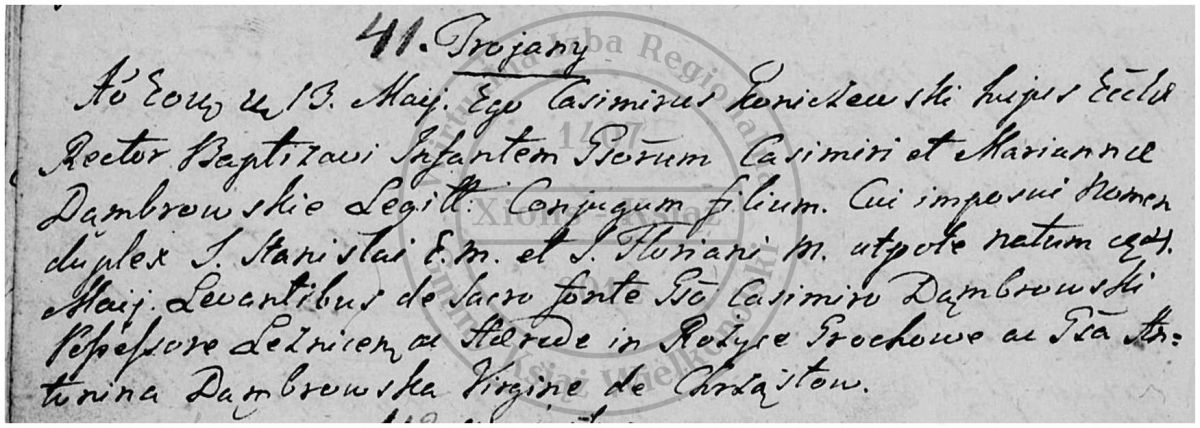 41. Trojany
Aõ Eodẽ d. 13. Maij. Ego Casimirus Koniczewski hujus Eccłæ
Rector Baptizavi Infantem Gsõrum Casimiri et Mariannæ
Dąmbrowskie Legitt: Conjugum filium. Cui imposui Nomen
duplex S. Stanislai E. M. et S. Floriani M. utpote natum
Maij. Levantibus de Sacro fonte Gsõ Casimiro Dąmbrowski
Possessore ac Hærede in Rożyce Grochowe ac Gsã An=
tonina Dąmbrowska Virgine de Chrząstow.
Wirtualna Izba Regionalna
1407
Xions - Książ
Gminy Książ Wielkopolski